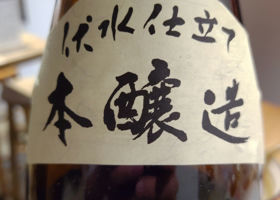 伏水仕立て
本醸造